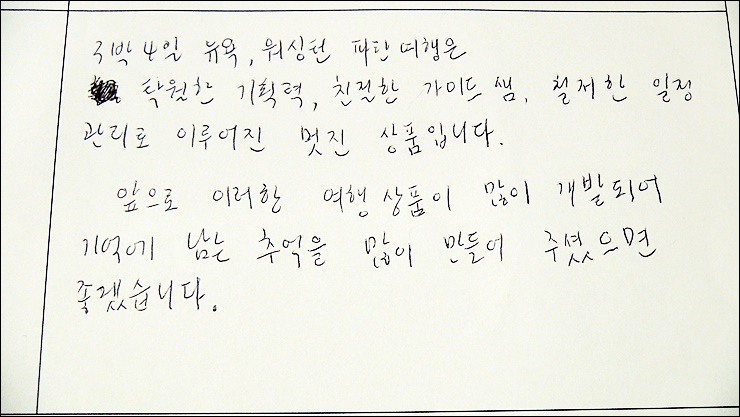 3박 4일 뉴욕, 워싱턴 파탄여행은
탁월한 기획력, 친절한 가이드 쌤, 철저한 일정
관리로 이루어진 멋진 상품입니다.
앞으로 이러한 여행상품이 많이 개발되어
기억에 남는 추억을 많이 만들어 주셨으면
좋겠습니다.